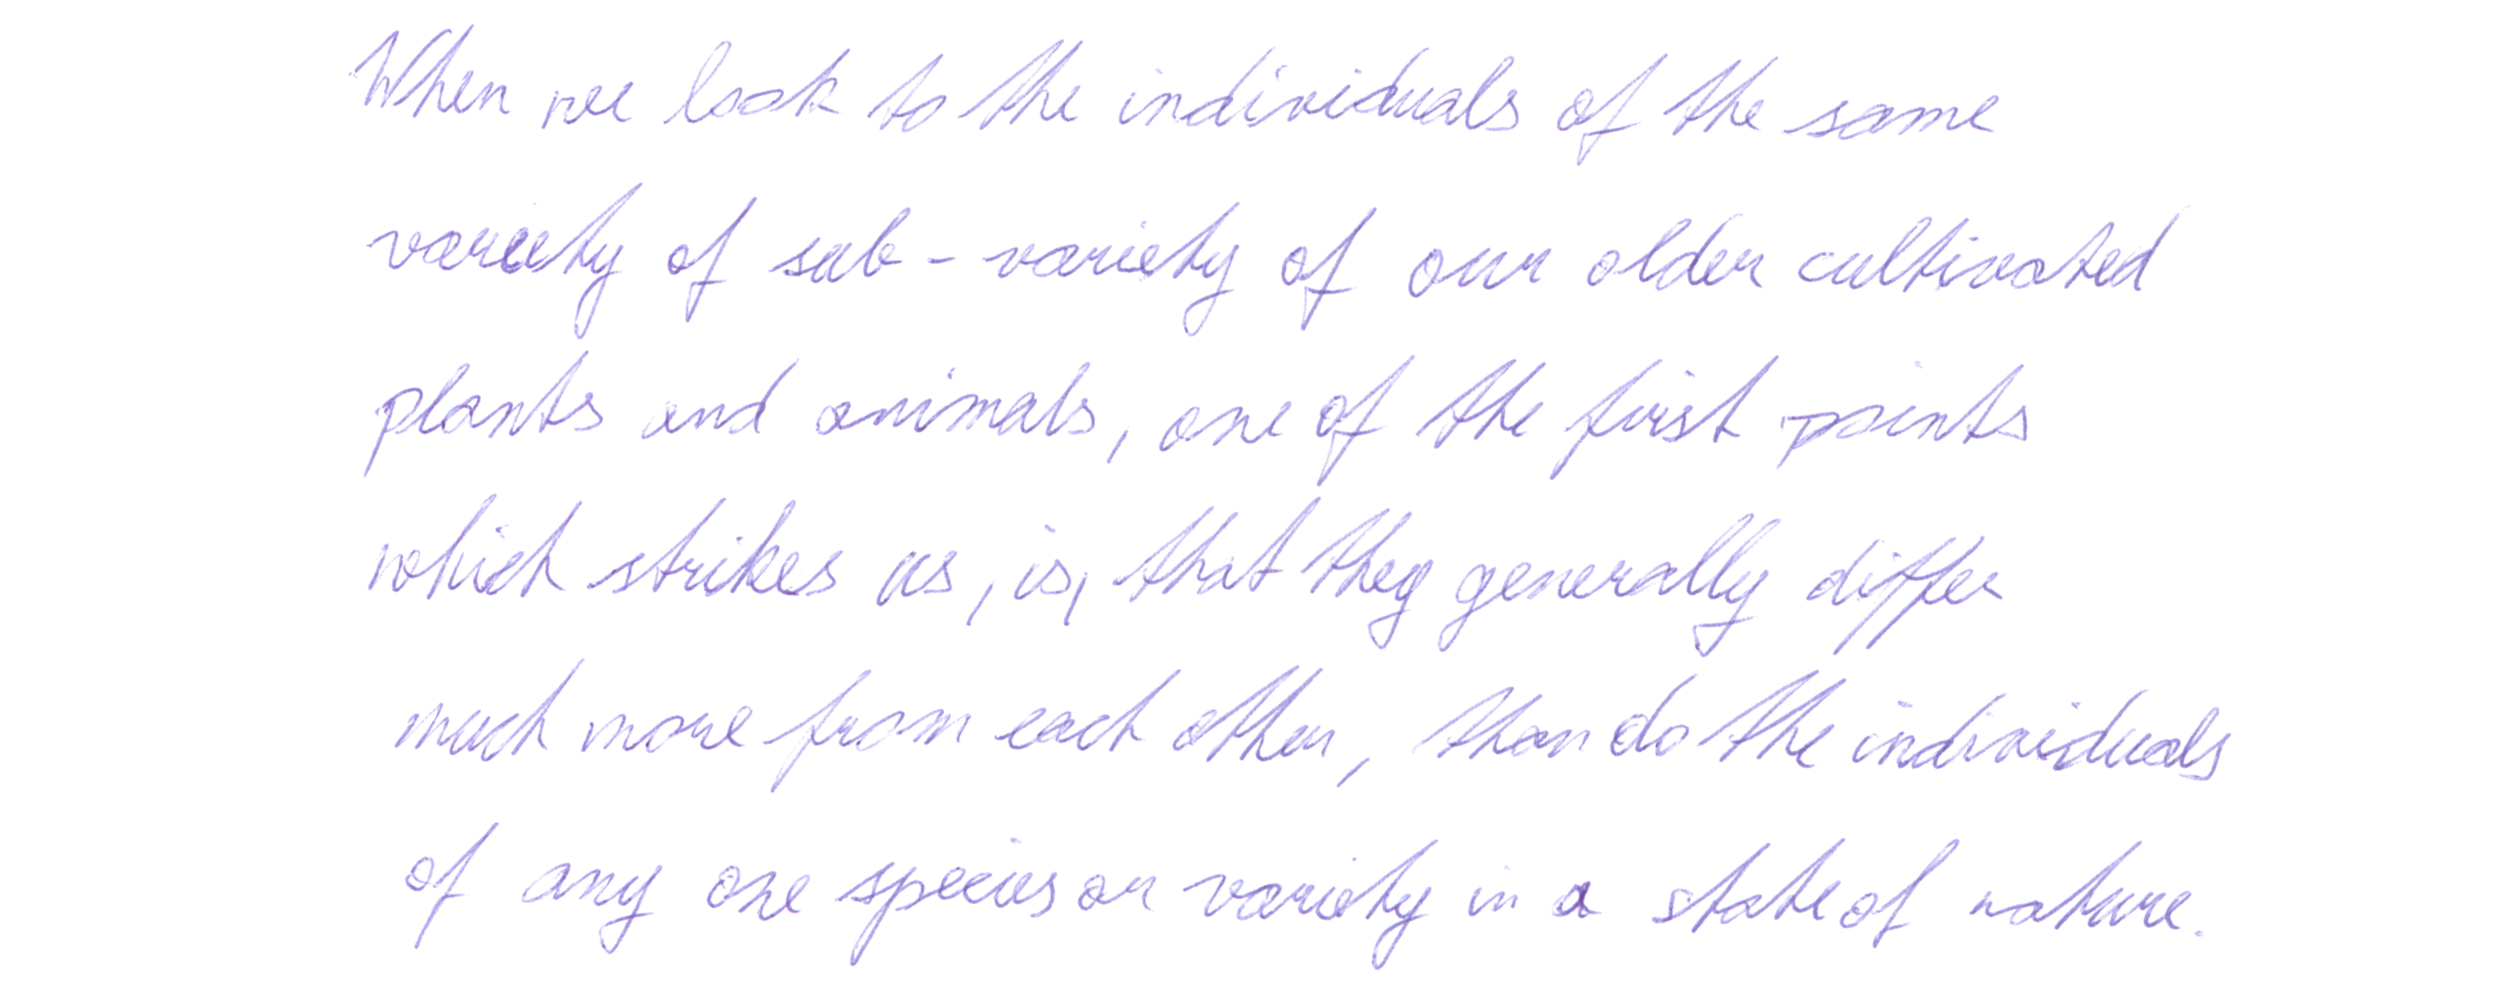 When we look to the individuals of the same
variety of sub-variety of our older cultivated
plants and animals, one of the first points
which strikes us, is, that they generally differ
much more from each other, than do the individuals
of any one species or variety in a state of nature.